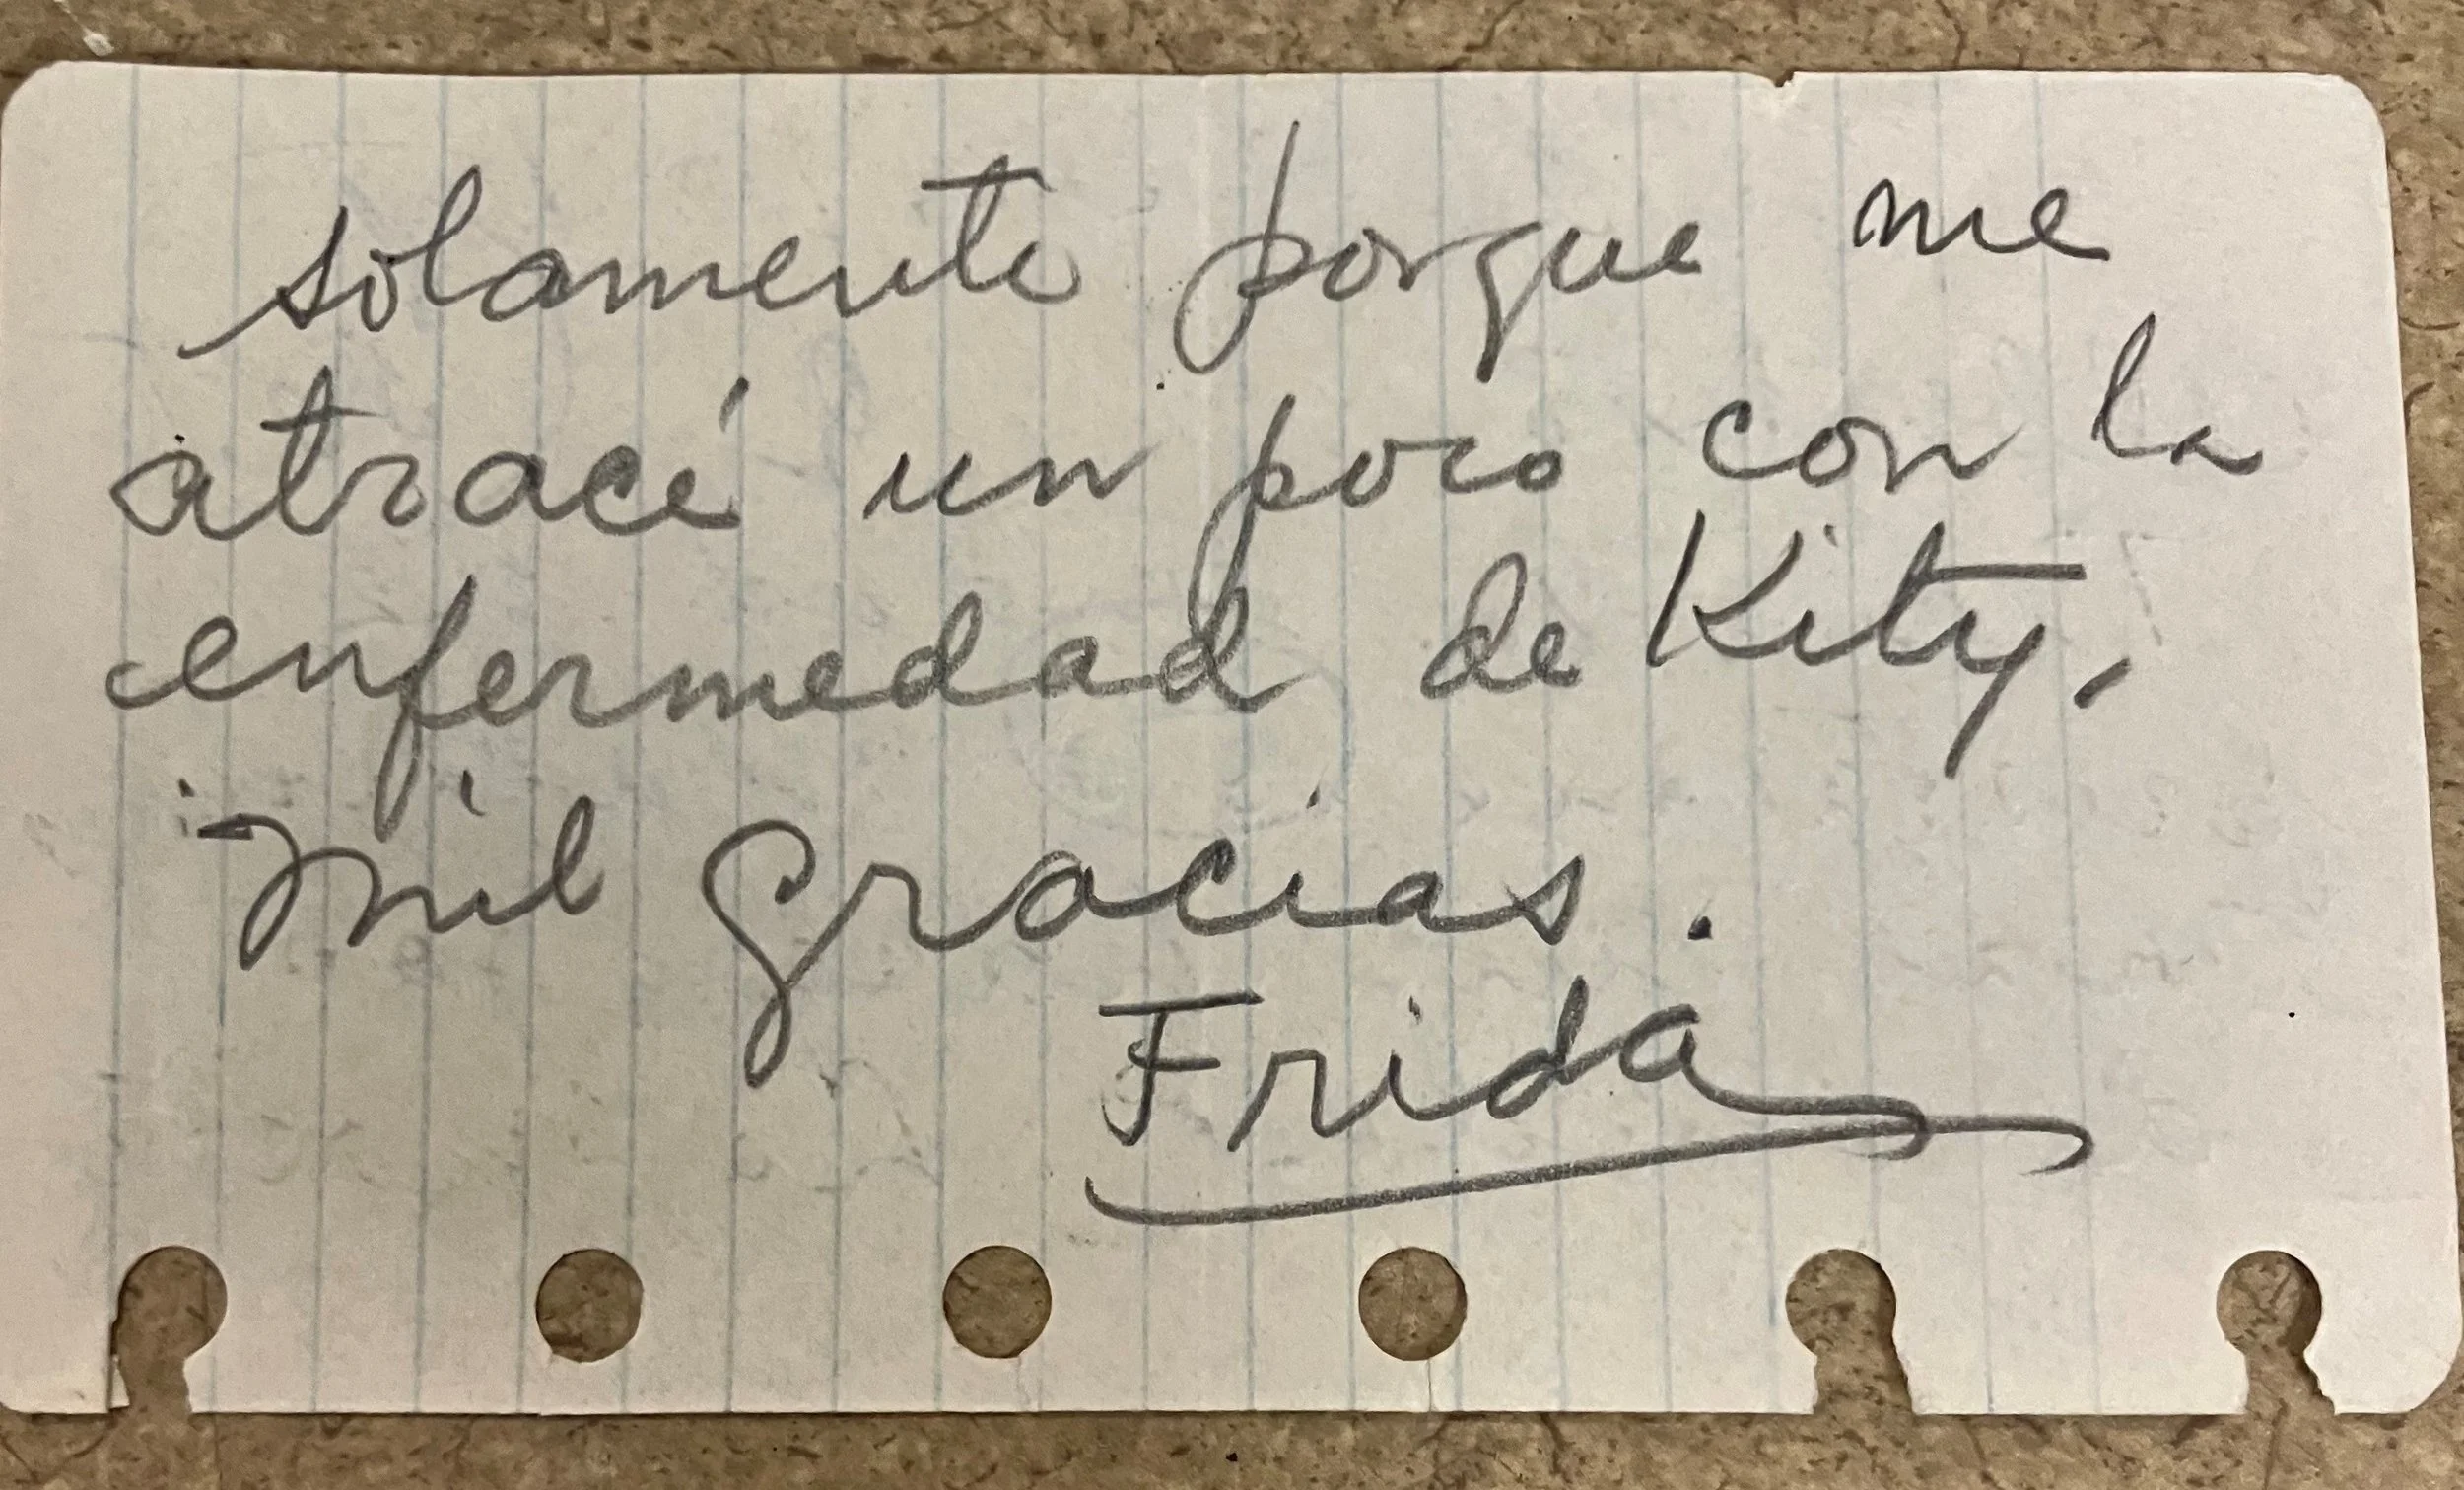 solamente porque me
atracé un poco con la
enfermedad de Kity,
mil gracias.
Frida